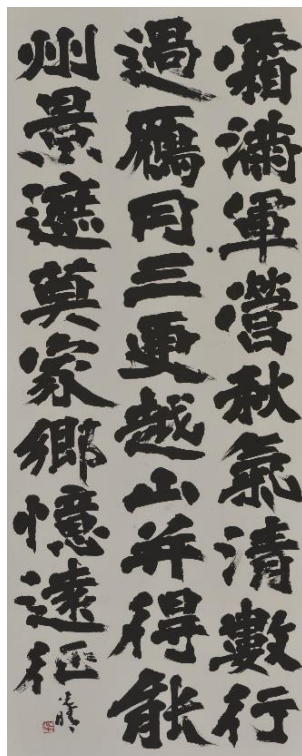 霜滿軍營秋氣清數行
過鴈月三更越山并得能
州景遮莫家鄉憶遠征